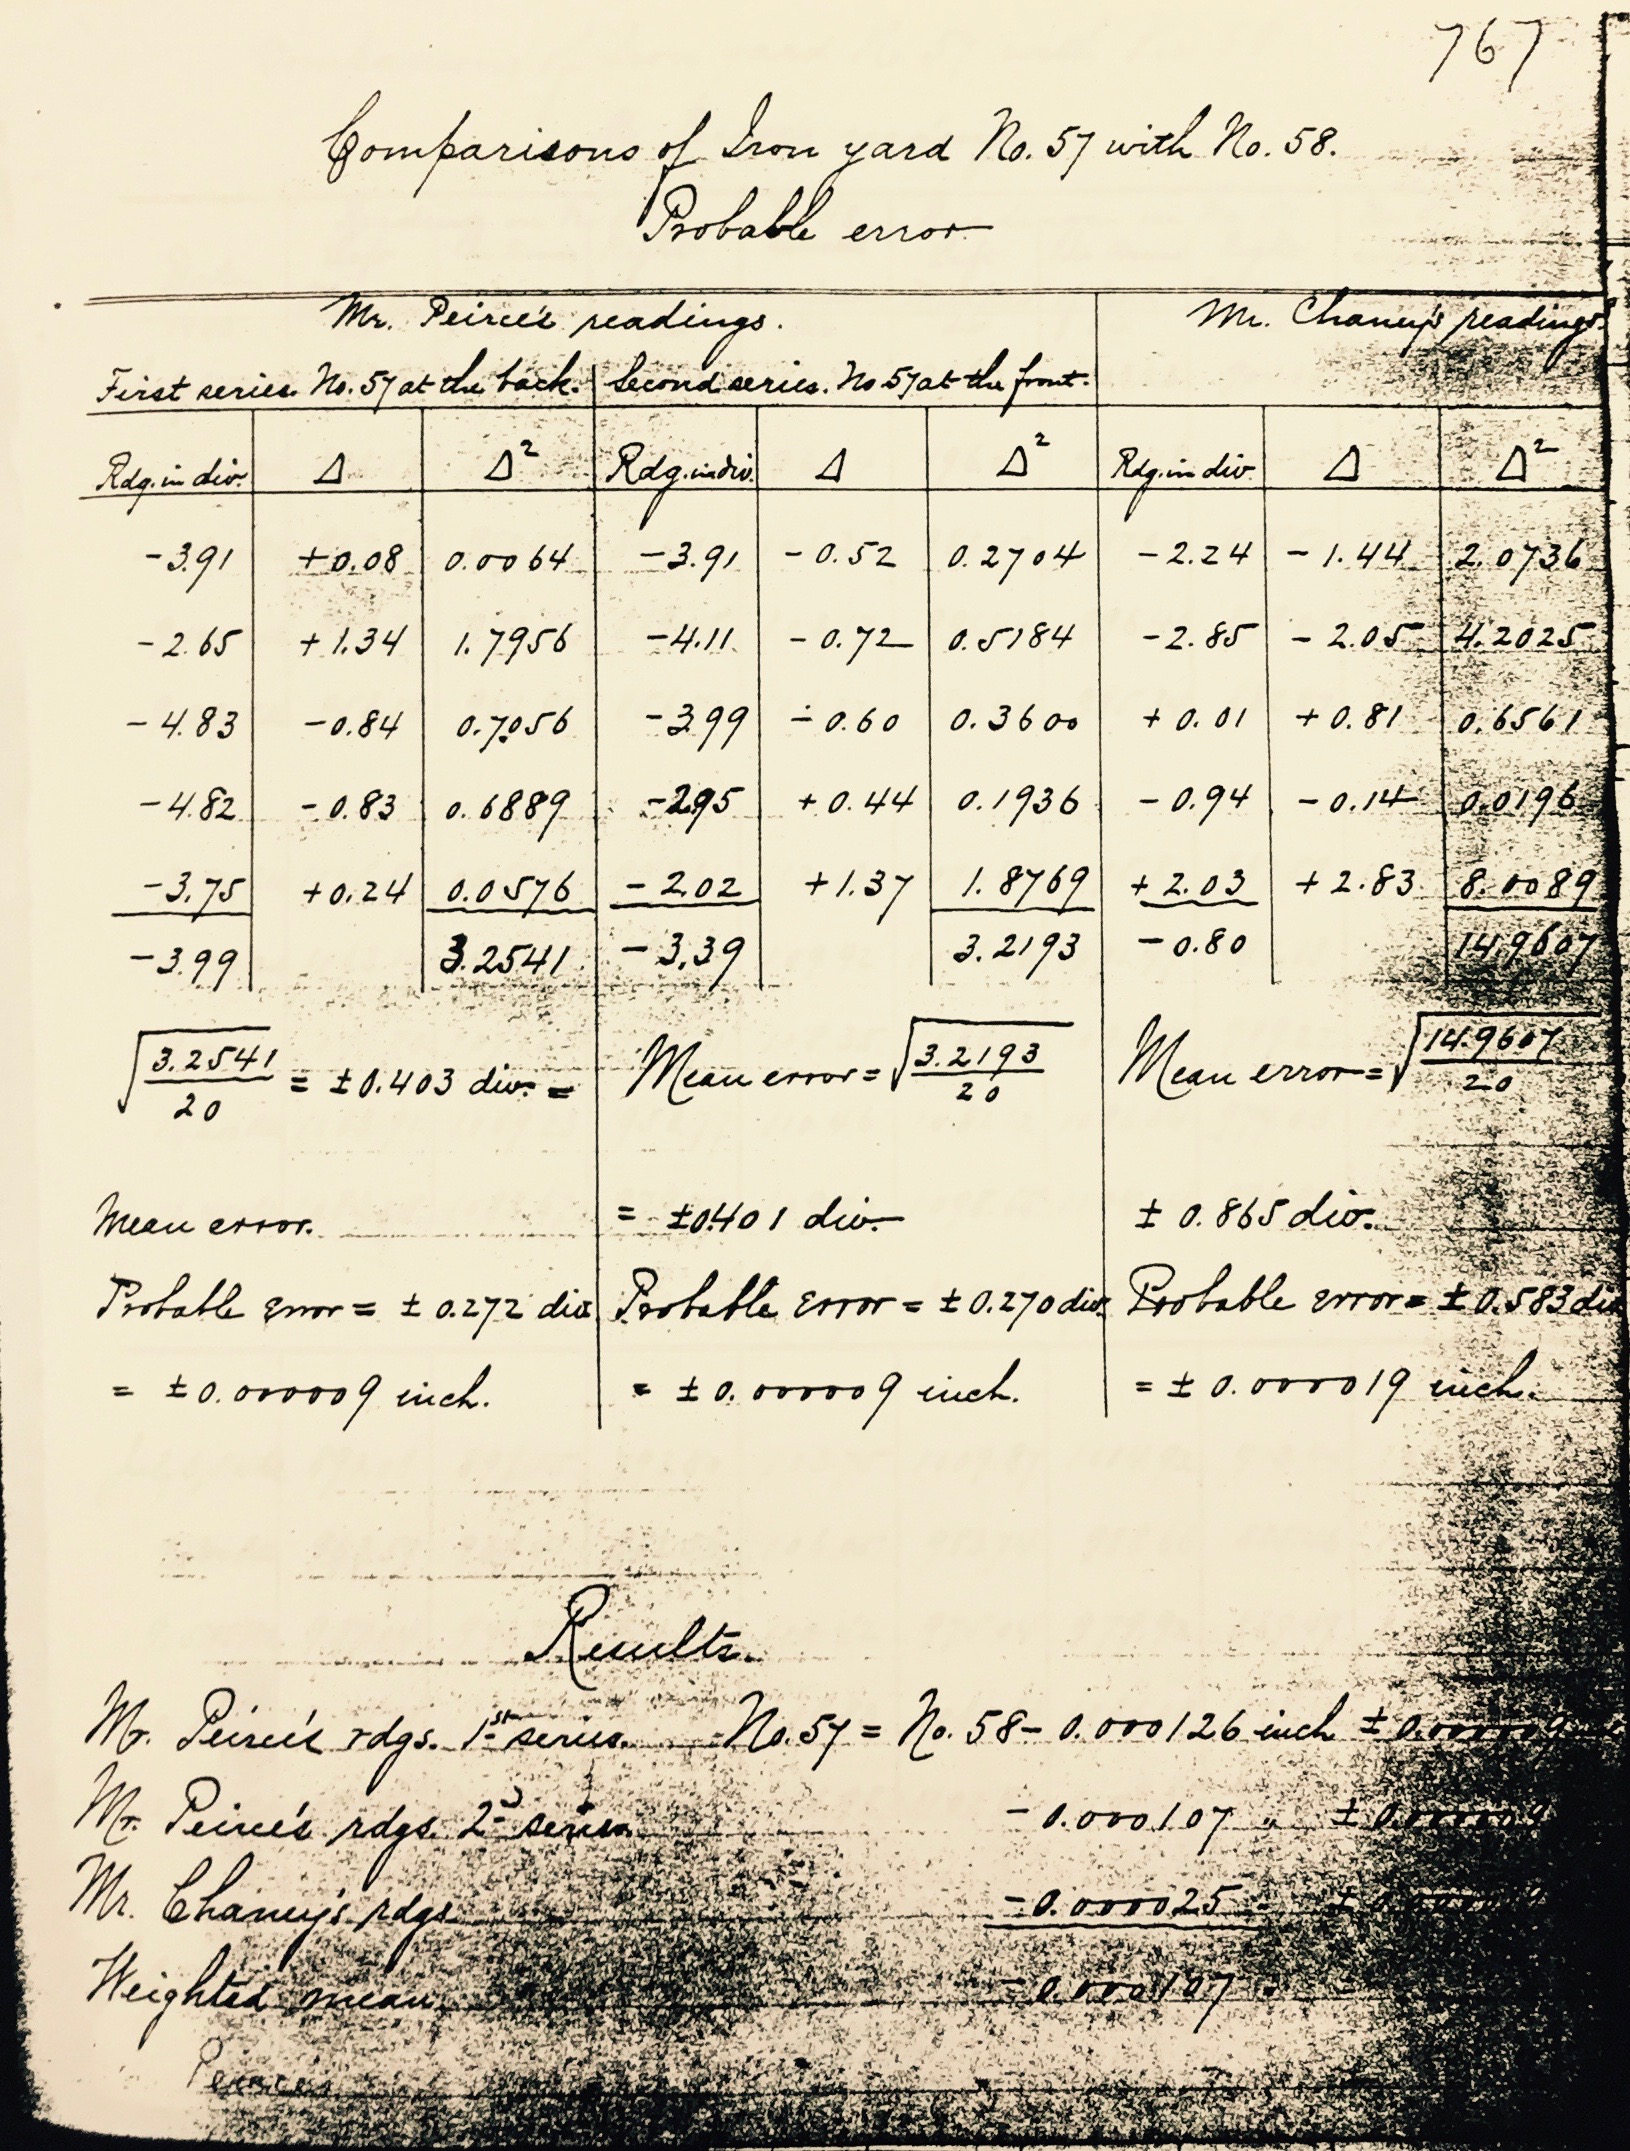 767
Comparisons of Iron yard No. 57 with No. 58.
Probable error
Mr. Peirce's readings. Mr. Chaney's readings.
First series. No. 57 at the back. Second series. No 57 at the front.
Rdg. in div. Δ Δ² Rdg. in div. Δ Δ² Rdg. in div. Δ Δ²
-3.91 +0.08 0.0064 -3.91 -0.52 0.2704 -2.24 -1.44 2.0736
-2.65 +1.34 1.7956 -4.11 -0.72 0.5184 -2.85 -2.05 4.2025
-4.83 -0.84 0.7056 -3.99 -0.60 0.3600 +0.01 +0.81 0.6561
-4.82 -0.83 0.6889 -2.95 +0.44 0.1936 -0.94 -0.14 0.0196
-3.75 +0.24 0.0576 -2.02 +1.37 1.8769 +2.03 +2.83 8.0089
-3.99 3.2541 -3.39 3.2193 -0.80 14.9607
√3.2541/20 = ±0.403 div. = Mean error = √3.2193/20 Mean error = √14.9607/20
Mean error. = ±0.401 div. ± 0.865 div.
Probable error = ± 0.272 div. Probable error = ±0.270 div. Probable error = ± 0.583 div
= ±0.000009 inch. = ±0.000009 inch. = ±0.000019 inch.
Results.
Mr. Peirce's rdgs. 1st series. No. 57 = No. 58 - 0.000126 inch ± 0.000009
Mr. Peirce's rdgs. 2d series - 0.000107 " ± 0.000009
Mr. Chaney's rdgs. -0.000025 ±
Weighted mean. -0.000107 "
Peirce's